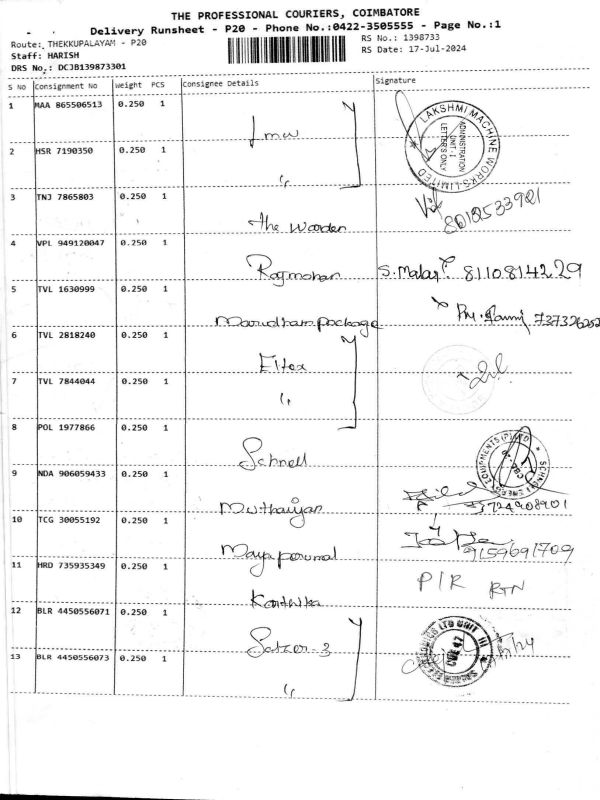 THE PROFESSIONAL COURIERS, COIMBATORE
Delivery Runsheet - P20 - Phone No.:0422-3505555 - Page No.:1
Route: THEKKUPALAYAM - P20
RS No.: 1398733
Staff: HARISH
RS Date: 17-Jul-2024
DRS No.: DCJB139873301
S No Consignment No Weight PCS Consignee Details Signature
1 MAA 865506513 0.250 1 Lmw
LAKSHMI MACHINE WORKS LIMITED
ADMINISTRATION
UNIT-I
LETTERS ONLY
2 HSR 7190350 0.250 1 "
3 TNJ 7865803 0.250 1 The Warden
4 VPL 949120047 0.250 1 Rajmohan S. Malar 8110814229
5 TVL 1630999 0.250 1 Marudham package
6 TVL 2818240 0.250 1 Eltex
7 TVL 7844044 0.250 1 "
8 POL 1977866 0.250 1 Schnell
9 NDA 906059433 0.250 1 Muthaiyan
10 TCG 30055192 0.250 1 Mayaperumal 9159691709
11 HRD 735935349 0.250 1 Karthika P/R RTN
12 BLR 4450556071 0.250 1 Salzer-3
13 BLR 4450556073 0.250 1 "